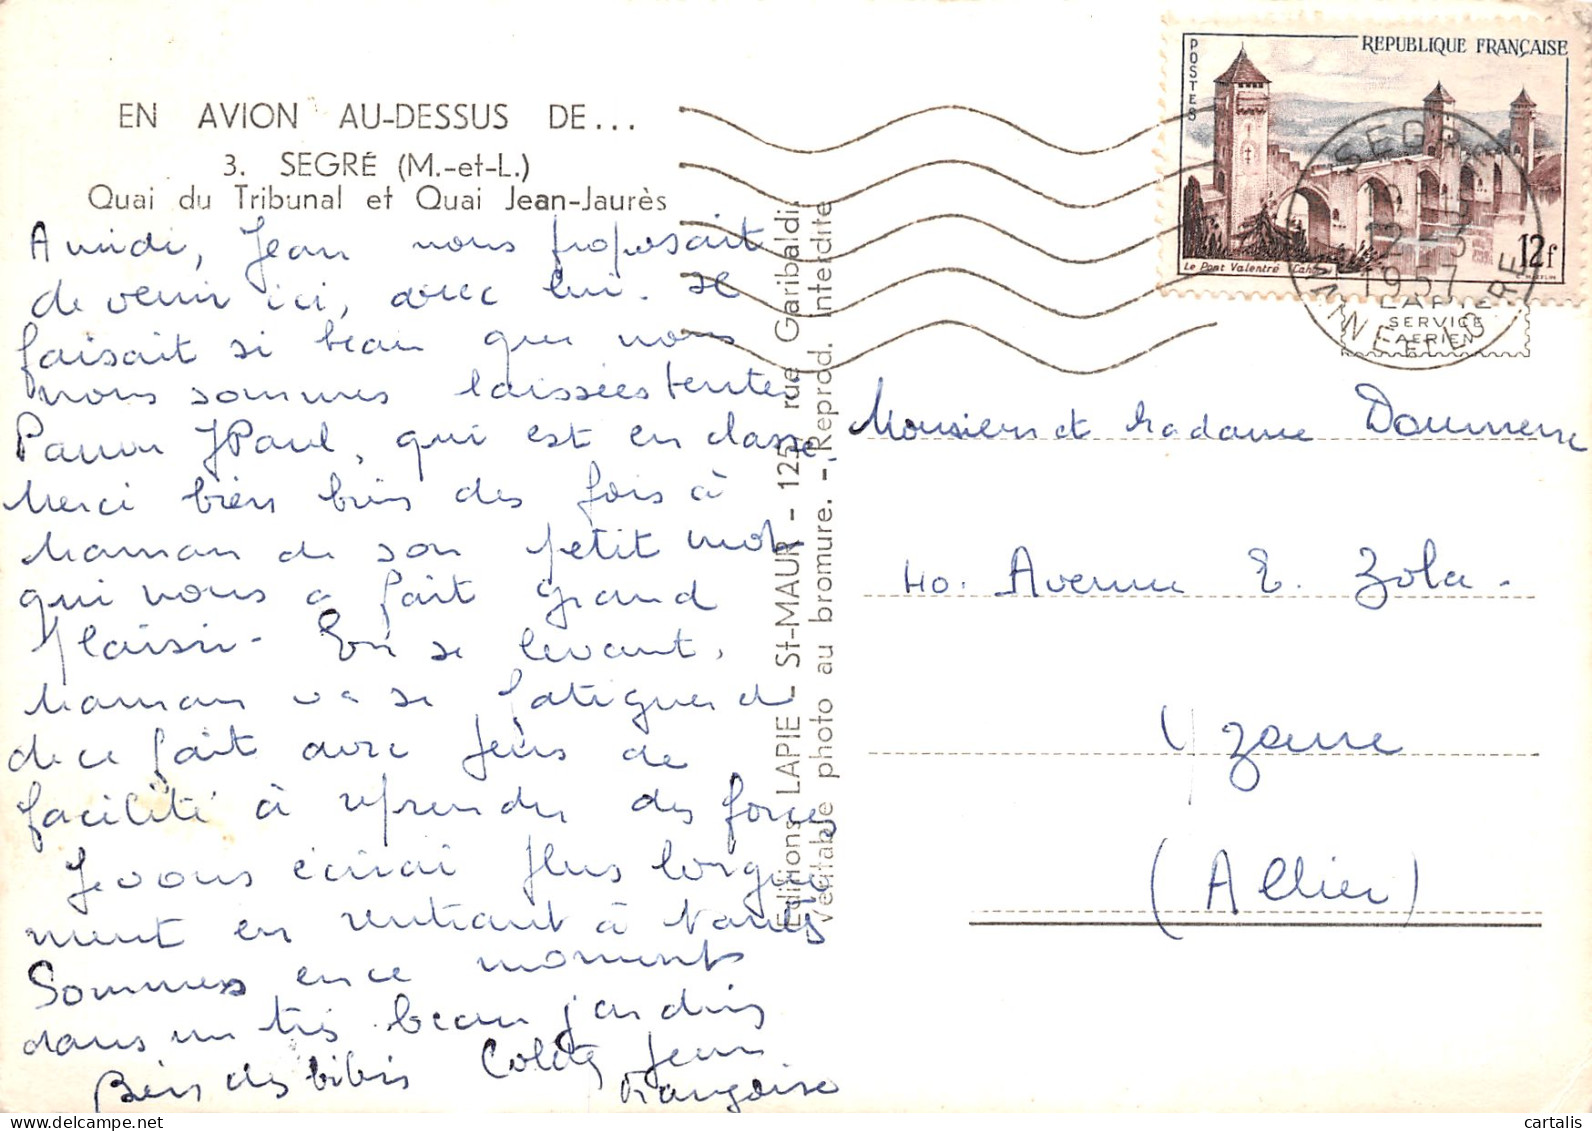 EN AVION AU-DESSUS DE...
3. SEGRÉ (M.-et-L.)
Quai du Tribunal et Quai Jean-Jaurès
A midi, Jean nous proposait
de venir ici, avec lui. Il
faisait si beau que nous
nous sommes laissées tenter.
Pauvre JPaul, qui est en classe.
Merci bien bien des fois à
Maman de son petit mot
qui nous a fait grand
plaisir - En se levant,
Maman va se fatiguer
de ce fait avec de
facilité à reprendre des forces
Je vous écrirai plus longue
ment en rentrant à Nantes
Sommes en ce moment
dans un très beau jardin
Bien des bibis Colette Jean
Françoise
Editions LAPIE - St-MAUR - 125, rue Garibaldi.
Véritable photo au bromure. - Reprod. Interdite
POSTES
REPUBLIQUE FRANÇAISE
Le Pont Valentré
12f
SEGRE
12 - 3
1957
MAINE ET LOIRE
LAPIE
SERVICE
AERIEN
Monsieur et Madame
40. Avenue E. Zola -
Yzeure
(Allier)
cartalis